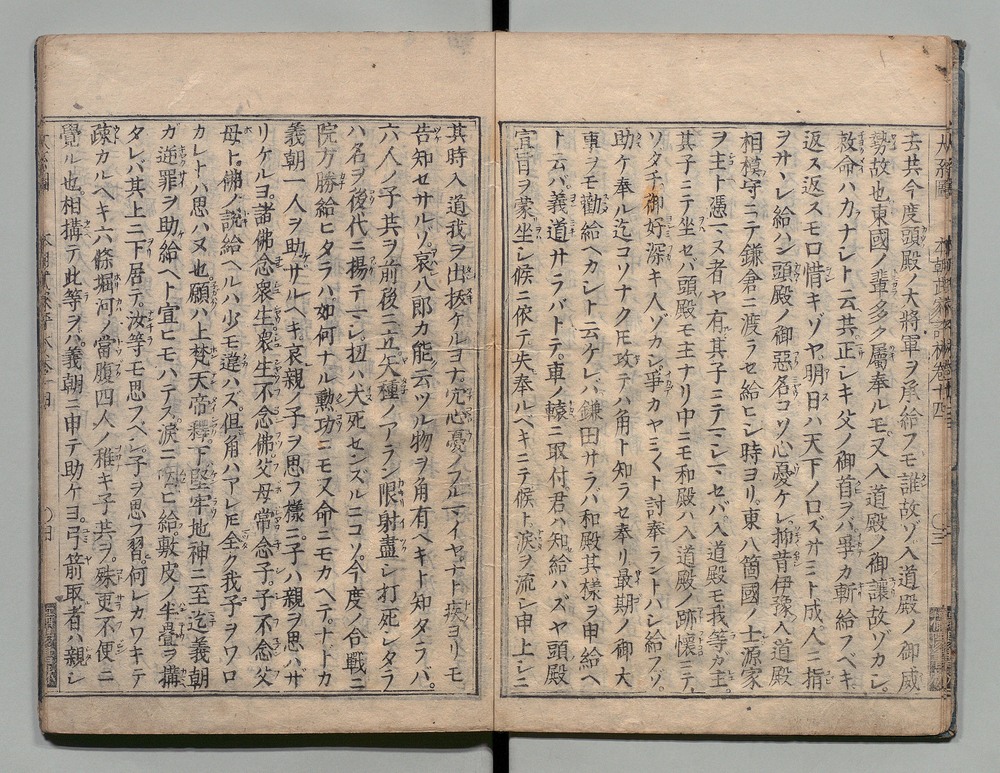 去共今度頭殿ノ大將軍ヲ承給フモ誰故ゾ入道殿ノ御威
勢故也東國ノ輩多ク屬奉ルモ又入道殿ノ御讓故ゾカシ
敕命ハカナシト云共正シキ父ノ御首ヲバ爭カ斬給フベキ
返ス返スモ口惜キゾヤ明日ハ天下ノ口ズサミト成人ニ指
ヲサヽレ給ハン頭殿ノ御惡名コソ心憂ケレ抑昔伊豫入道殿
相模守ニテ鎌倉ニ渡ラセ給ヒシ時ヨリ東八箇國ノ士源家
ヲ主ト憑マヌ者ヤ有其子ニテマシマセバ入道殿モ我等カ主
其子ニテ坐セバ頭殿モ主ナリ中ニモ和殿ハ入道殿ノ跡懷ニテ
ソダチ御好深キ人ゾカシ爭カヤミ〱ト討奉ラントハシ給フゾ
助ケ奉ル迄コソナクトモ攻テハ角ト知ラセ奉リ最期ノ御大
事ヲモ勸給ヘカシト云ケレバ鎌田サラバ和殿其樣ヲ申給ヘ
ト云バ義道サラバトテ車ノ轅ニ取付君ハ知給ハズヤ頭殿
宜旨ヲ蒙坐シ候ニ依テ失奉ルベキニテ候ト淚ヲ流シ申上シニ
其時入道我ヲ出拔ケルヨナ穴心憂ノフルマイヤナト疾ヨリモ
告知セサルゾ哀八郎カ能云ツル物ヲ角有ヘキト知タラバ
六人ノ子共ヲ前後ニ立矢種ノアラン限射盡シ打死シタラ
ハ名ヲ後代ニ揚テマシ扨ハ犬死センズルニコソ今度ノ合戰ニ
院方勝給ヒタラハ如何ナル勳功ニモ又命ニモカヘテナトカ
義朝一人ヲ助ザルヘキ哀親ノ子ヲ思フ樣ニ子ハ親ヲ思ハザ
リケルヨ諸佛念衆生衆生不念佛父母常念子子不念父
母ト佛ノ説給ヘルハ少モ違ハズ但角ハアレトモ全ク我子ヲワロ
カレトハ思ハヌ也願ハ上梵天帝釋下堅牢地神ニ至迄義朝
ガ逆罪ヲ助給ヘト宣ヒモハテス淚ニ咽ヒ給敷皮ノ半疊ヲ搆
タレバ其上ニ下居テ汝等モ思フベシ子ヲ思フ習何レカワキテ
疎カルヘキ六條堀河ノ當腹四人ノ稚キ子共ヲ殊更不便ニ
覺ル也相搆テ此等ヲハ義朝ニ申テ助ケヨ弓箭取者ハ親シ